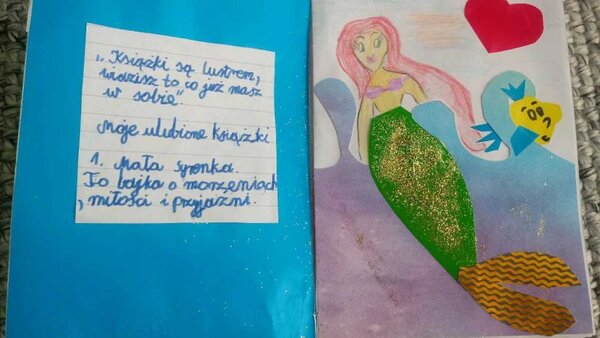 „Książki są lustrem,
widzisz to, co już masz
w sobie".
Moje ulubione książki
1. Mała syrenka.
To bajka o marzeniach
, miłości i przyjaźni.